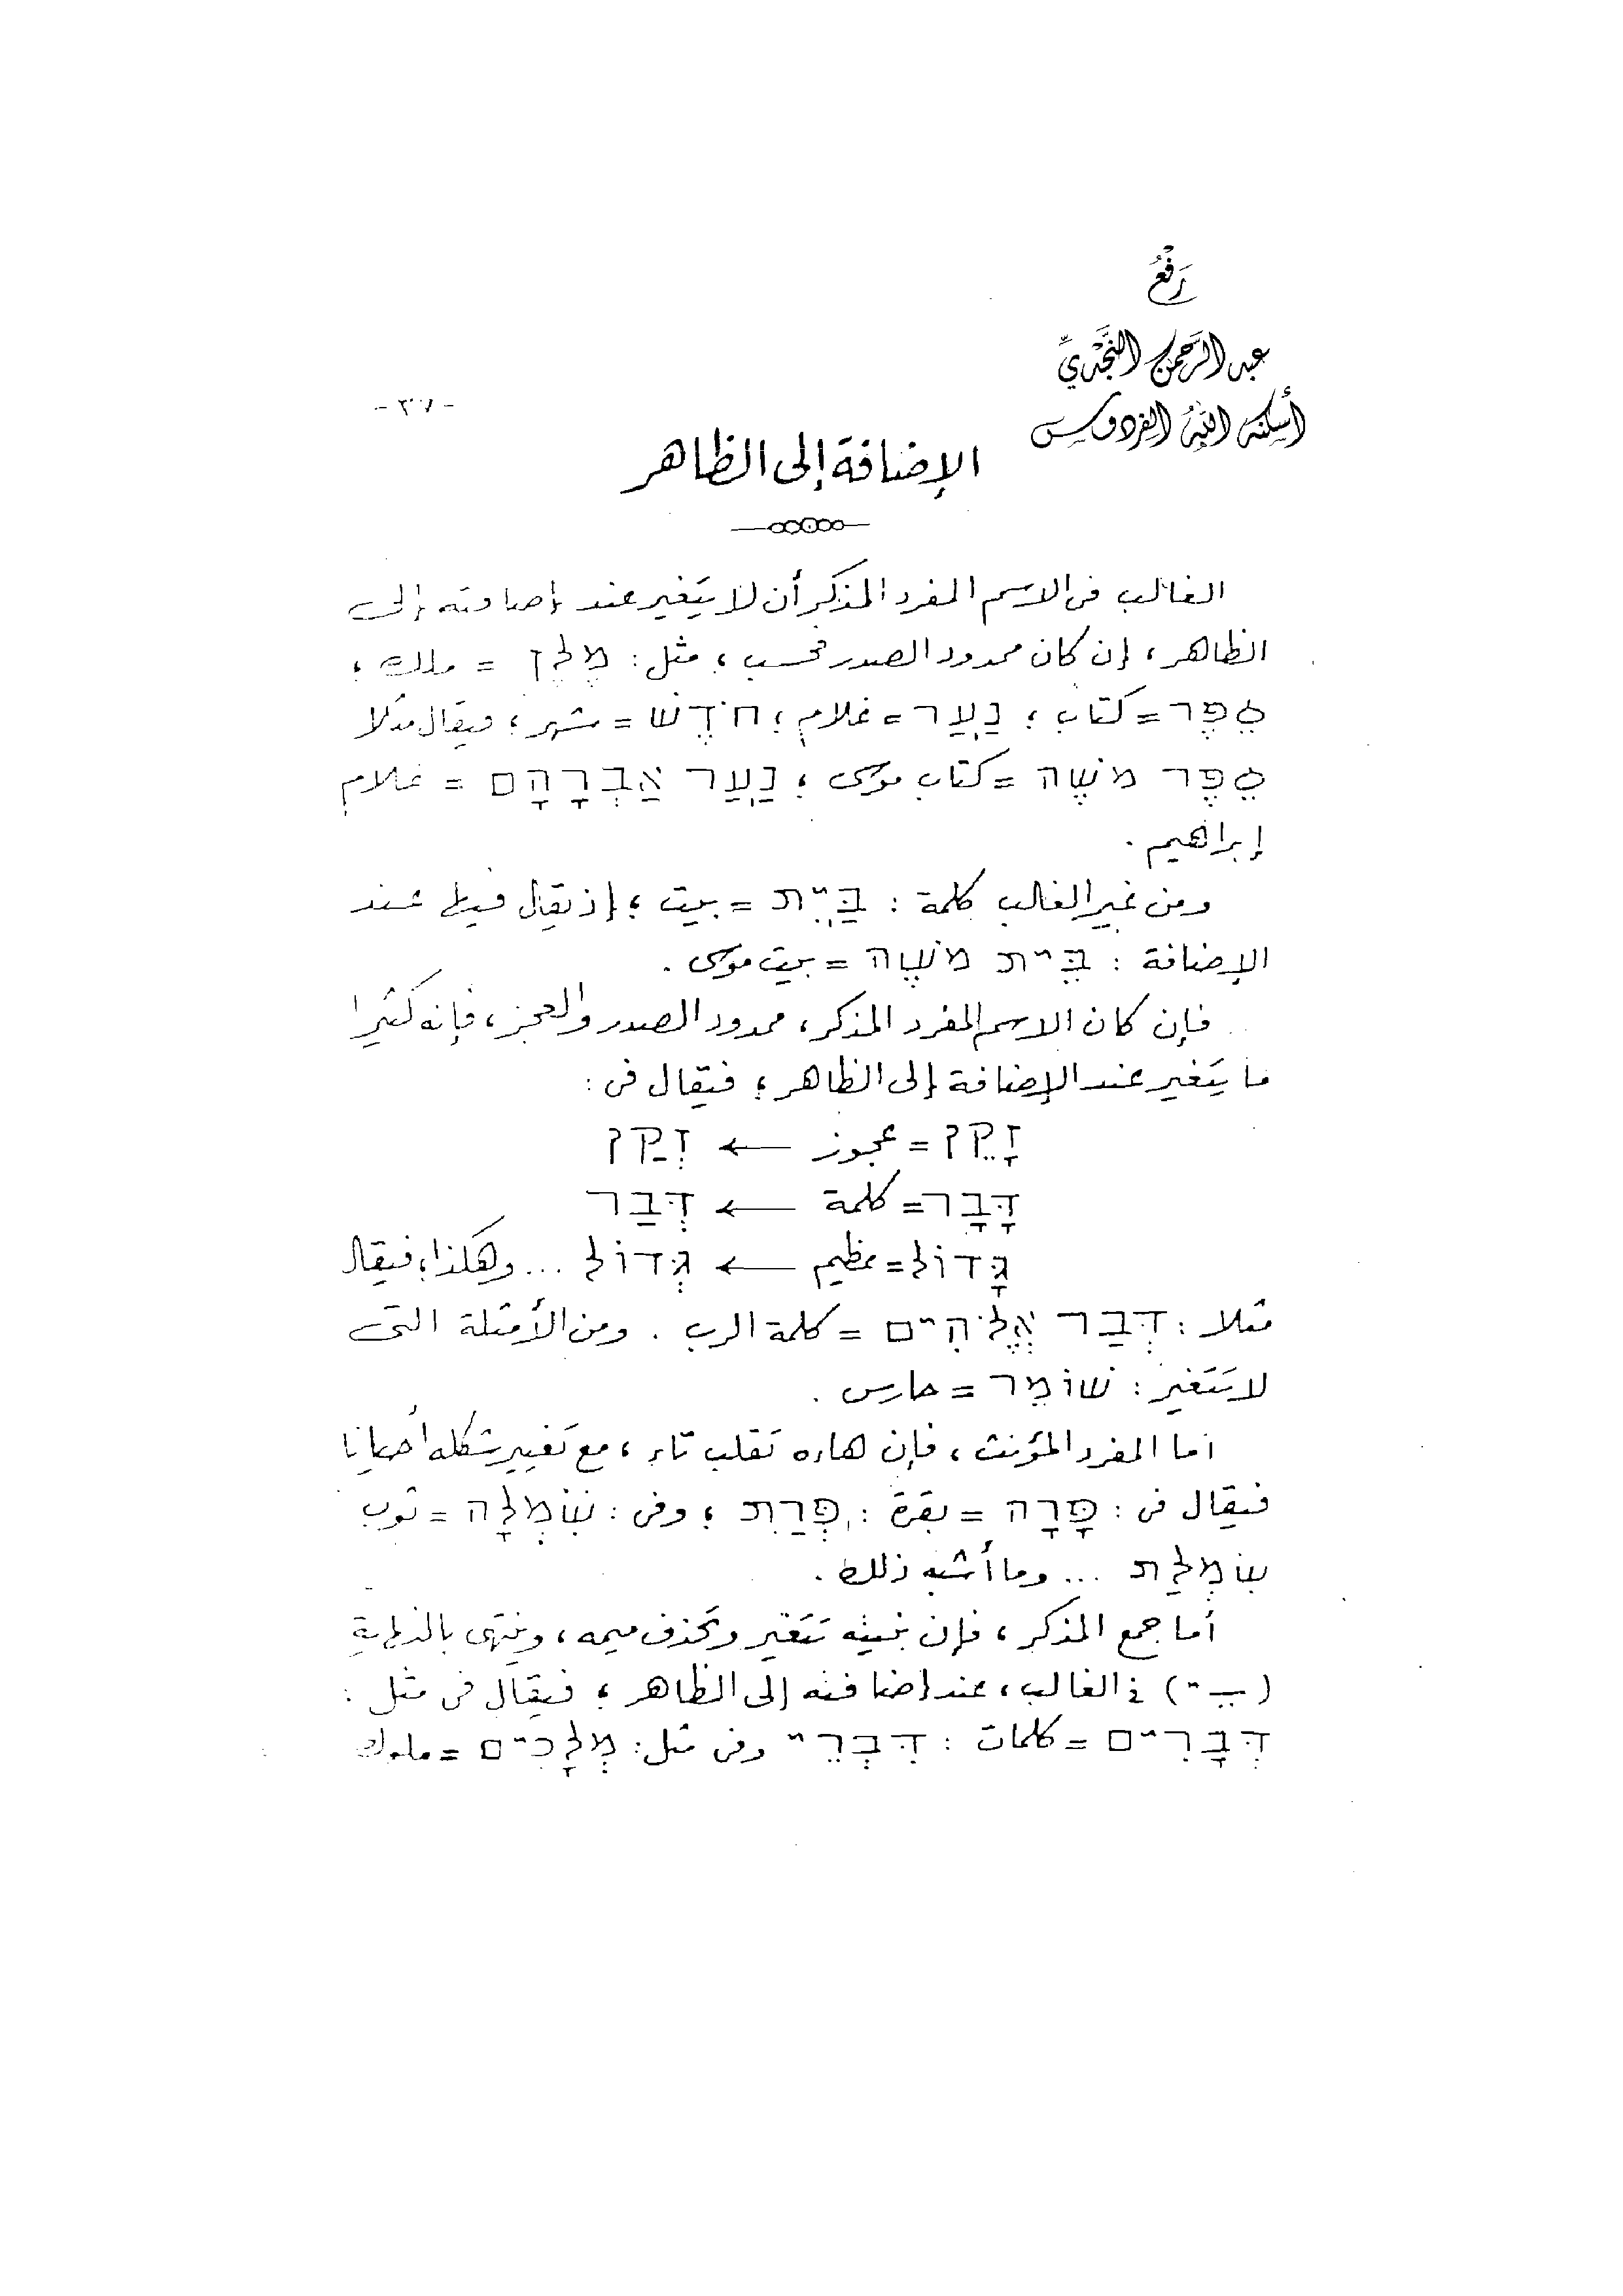 رَفْعُ
عبد الرحمن النجدي
أسكنه الله الفردوس
- ٣٧ -
الإضافة إلى الظاهر
الغالب فى الاسم المفرد المذكر أن لا يتغير عند إضافته إلى
الظاهر ، إن كان ممدود الصدر فحسب ؛ مثل : מֶלֶך = ملك ؛
סֵפֶר = كتاب ؛ נַעַר = غلام ؛ חֹדֶשׁ = شهر ؛ فيقال مثلا
סֵפֶר מֹשֶׁה = كتاب موسى ؛ נַעַר אַבְרָהָם = غلام
إبراهيم .
ومن غير الغالب كلمة : בַּיִת = بيت ؛ إذ يقال فيها عند
الإضافة : בֵּית מֹשֶׁה = بيت موسى .
فإن كان الاسم المفرد المذكر ، ممدود الصدر والعجز ، فإنه كثيرا
ما يتغير عند الإضافة إلى الظاهر ؛ فيقال فى :
זָקֵן = عجوز ← זְקַן
דָּבָר = كلمة ← דְּבַר
גָּדוֹל = عظيم ← גְּדוֹל ... وهكذا ؛ فيقال
مثلا : דְּבַר אֱלֹהִים = كلمة الرب . ومن الأمثلة التى
لا تتغير : שׁוֹמֵר = حارس .
أما المفرد المؤنث ، فإن هاءه تقلب تاء ، مع تغيير شكله أحيانا
فيقال فى : פָּרָה = بقرة : פָּרַת ؛ وفى : שִׂמְלָה = ثوب
שִׂמְלַת ... وما أشبه ذلك .
أما جمع المذكر ، فإن بنيته تتغير وتحذف ميمه ، وينتهى بالنهاية
( ֵי ) فى الغالب ، عند إضافته إلى الظاهر ؛ فيقال فى مثل :
דְּבָרִים = كلمات : דִּבְרֵי وفى مثل : מְלָכִים = ملوك